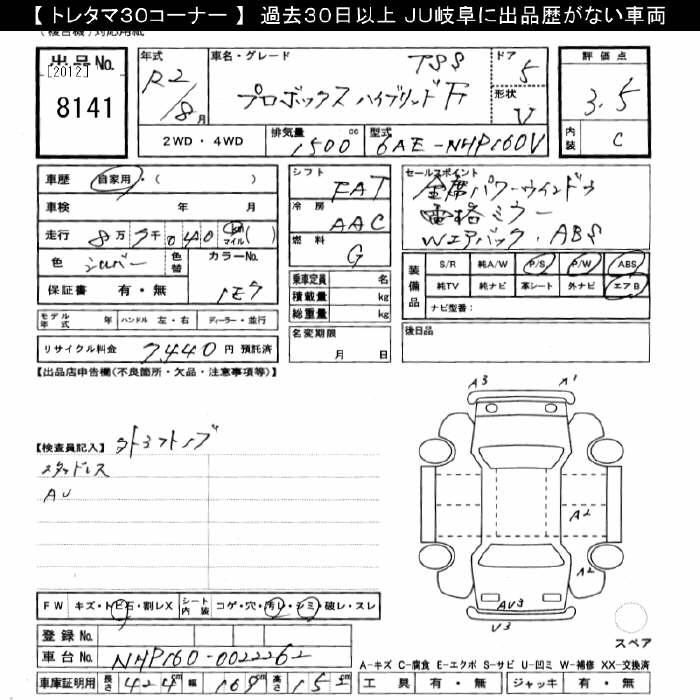 【 トレタマ30コーナー 】 過去30日以上 JU岐阜に出品歴がない車両
(複合機)対応用紙
出品No.
[2012]
8141
年式
R2/8月
車名・グレード
TSS
プロボックスハイブリッド F
ドア
5
形状
V
2WD・4WD
排気量
1500 cc
型式
6AE-NHP160V
評価点
3.5
内装
C
車歴 自家用・( )
車検 年 月
走行 8万7千040 km マイル ( )
色 シルバー 色替 カラーNo. 1E7
保証書 有・無
モデル年式 年 ハンドル 左・右 ディーラー・並行
リサイクル料金 7440 円 預託済
シフト FAT
冷房 AAC
燃料 G
乗車定員 名
積載量 kg
総重量 kg
名変期限
月 日
セールスポイント
全席パワーウインドウ
電格ミラー
Wエアバック・ABS
装備品
S/R 純A/W P/S P/W ABS
純TV 純ナビ 革シート 外ナビ エアB
ナビ型番:
後日品
【出品店申告欄(不良箇所・欠品・注意事項等)】
【検査員記入】
スタッドレス
AU
A3 A1
A2
A2
AV3
V3
スペア
FW キズ・トビ石・割レX シート内装 コゲ・穴・汚レ・シミ・破レ・スレ
登録No.
車台No. NHP160-0022262
車庫証明用 長さ 424 cm 幅 169 cm 高さ 152 cm
A-キズ C-腐食 E-エクボ S-サビ U-凹ミ W-補修 XX-交換済
工具 有・無 ジャッキ 有・無